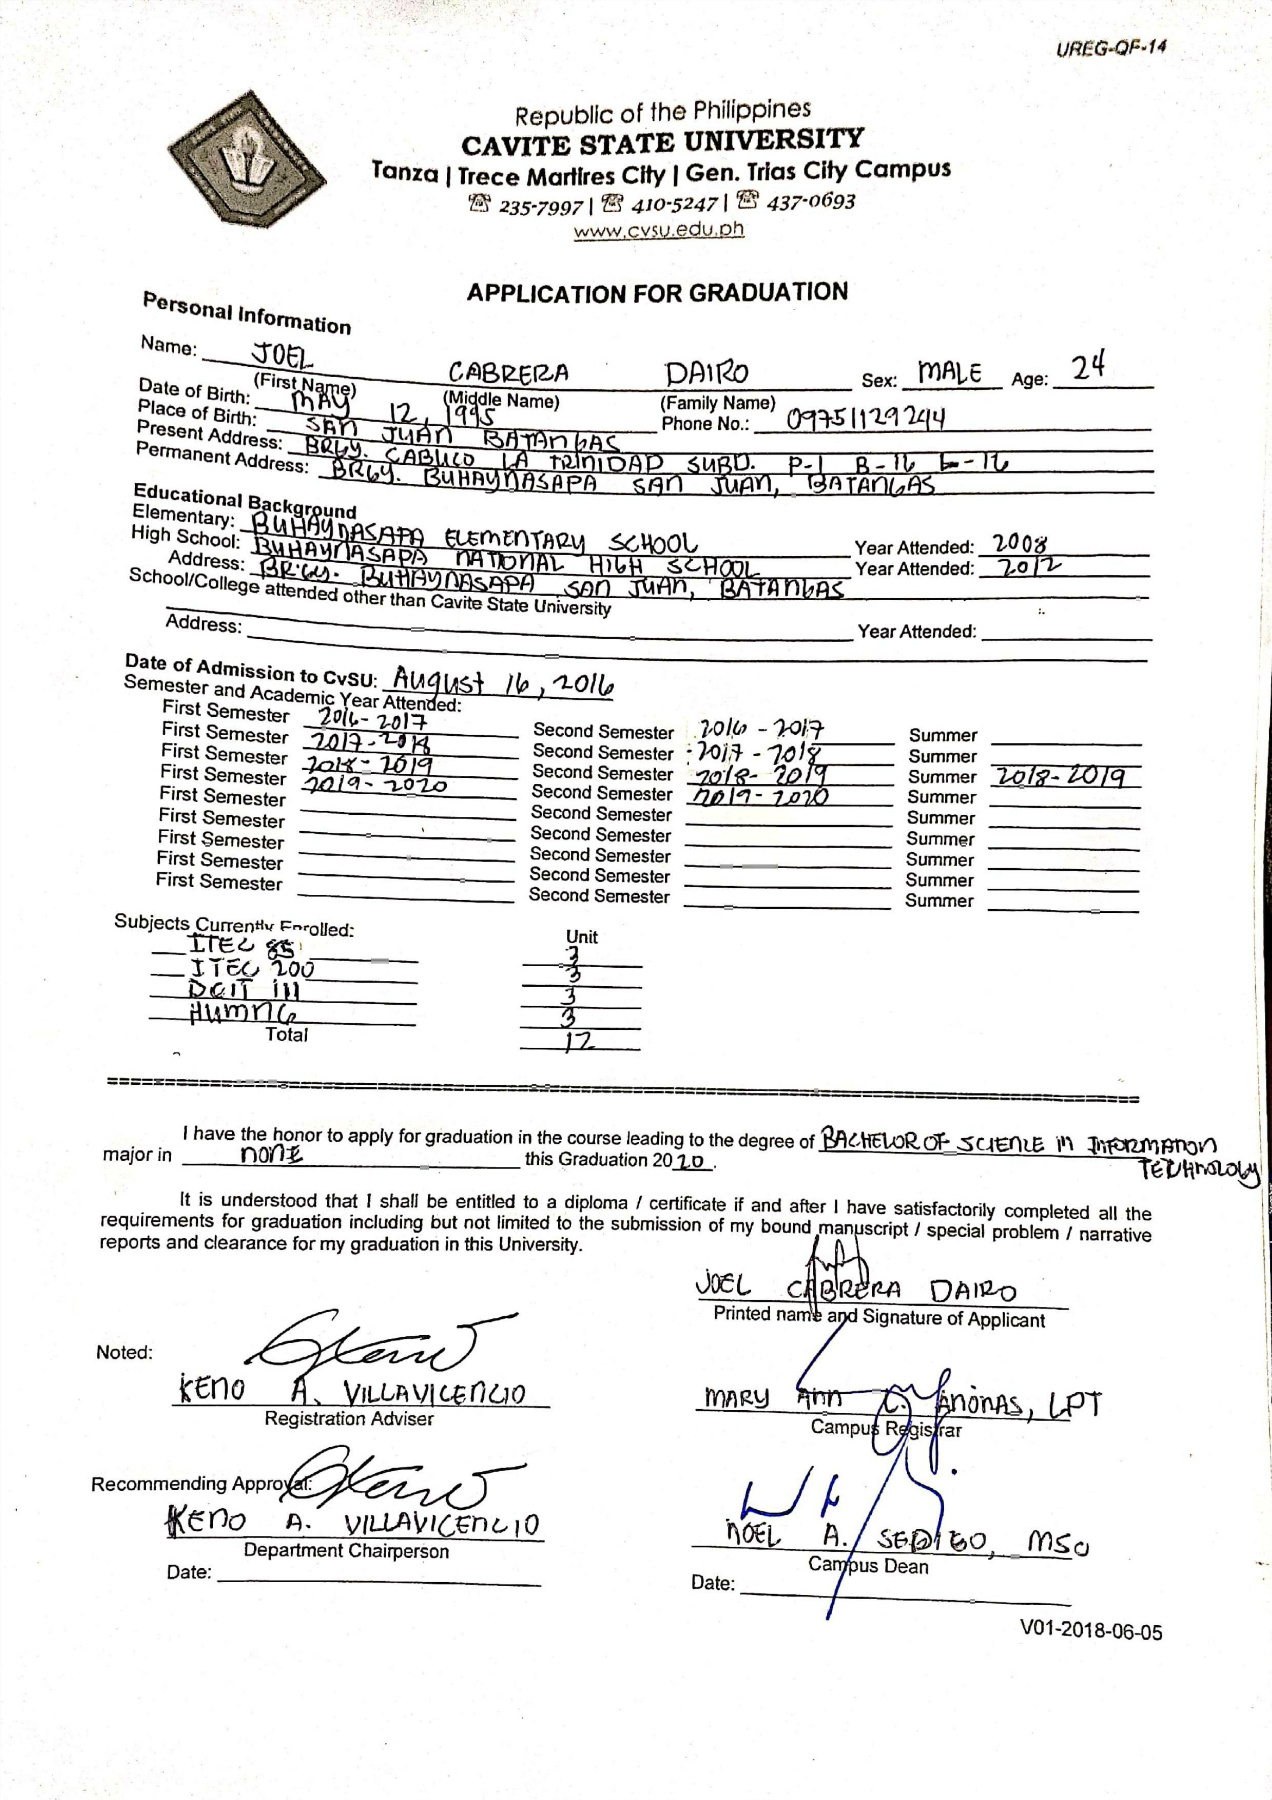 UREG-QF-14
Republic of the Philippines
CAVITE STATE UNIVERSITY
Tanza | Trece Martires City | Gen. Trias City Campus
☎ 235-7997 | ☎ 410-5247 | ☎ 437-0693
www.cvsu.edu.ph
APPLICATION FOR GRADUATION
Personal Information
Name: JOEL CABRERA DAIRO Sex: MALE Age: 24
(First Name) (Middle Name) (Family Name)
Date of Birth: MAY 12, 1995 Phone No.: 09751129244
Place of Birth: SAN JUAN BATANGAS
Present Address: BRGY. CABUCO LA TRINIDAD SUBD. P-1 B-16 L-16
Permanent Address: BRGY. BUHAYNASAPA SAN JUAN, BATANGAS
Educational Background
Elementary: BUHAYNASAPA ELEMENTARY SCHOOL Year Attended: 2008
High School: BUHAYNASAPA NATIONAL HIGH SCHOOL Year Attended: 2012
Address: BRGY. BUHAYNASAPA SAN JUAN, BATANGAS
School/College attended other than Cavite State University
Address: Year Attended:
Date of Admission to CvSU: AUGUST 16, 2016
Semester and Academic Year Attended:
First Semester 2016-2017 Second Semester 2016-2017 Summer
First Semester 2017-2018 Second Semester 2017-2018 Summer
First Semester 2018-2019 Second Semester 2018-2019 Summer 2018-2019
First Semester 2019-2020 Second Semester 2019-2020 Summer
First Semester Second Semester Summer
First Semester Second Semester Summer
First Semester Second Semester Summer
First Semester Second Semester Summer
First Semester Second Semester Summer
Subjects Currently Enrolled: Unit
ITEC 85 3
ITEC 200 3
DCIT 111 3
HUMN6 3
Total 12
I have the honor to apply for graduation in the course leading to the degree of BACHELOR OF SCIENCE IN INFORMATION
TECHNOLOGY
major in NONE this Graduation 2020.
It is understood that I shall be entitled to a diploma / certificate if and after I have satisfactorily completed all the
requirements for graduation including but not limited to the submission of my bound manuscript / special problem / narrative
reports and clearance for my graduation in this University.
JOEL CABRERA DAIRO
Printed name and Signature of Applicant
Noted:
KENO A. VILLAVICENCIO
Registration Adviser
MARY ANN C. ANONAS, LPT
Campus Registrar
Recommending Approval:
KENO A. VILLAVICENCIO
Department Chairperson
Date:
NOEL A. SEDIGO, MSc
Campus Dean
Date:
V01-2018-06-05